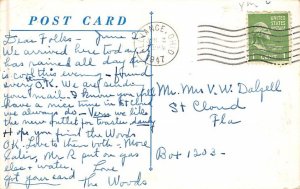 POST CARD
Dear Folks - June 22
We arrived here today it
has rained all day and
is cool this evening - Found
every O.K. We are sending
your mail. I know you will
have a nice time in
we always do - Verne we like
the new outlet for truster
Hope you find the Woods
O.K. Love to them both - More
Later, Mr R put on gas
else + water. Love
Got your card The Woods
1947
1
Mr. Mrs V. W. Dalzell
St Cloud
Fla
Box 1203 -